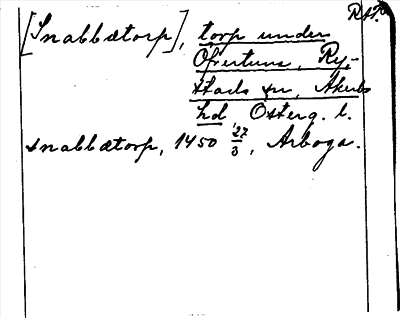 RAp.
[Snabbætorp], torp under
Ofvertuna, Ry-
stads sn, Åkerbo
hd Österg. l.
snabbætorp, 1450 27/3, Arboga.